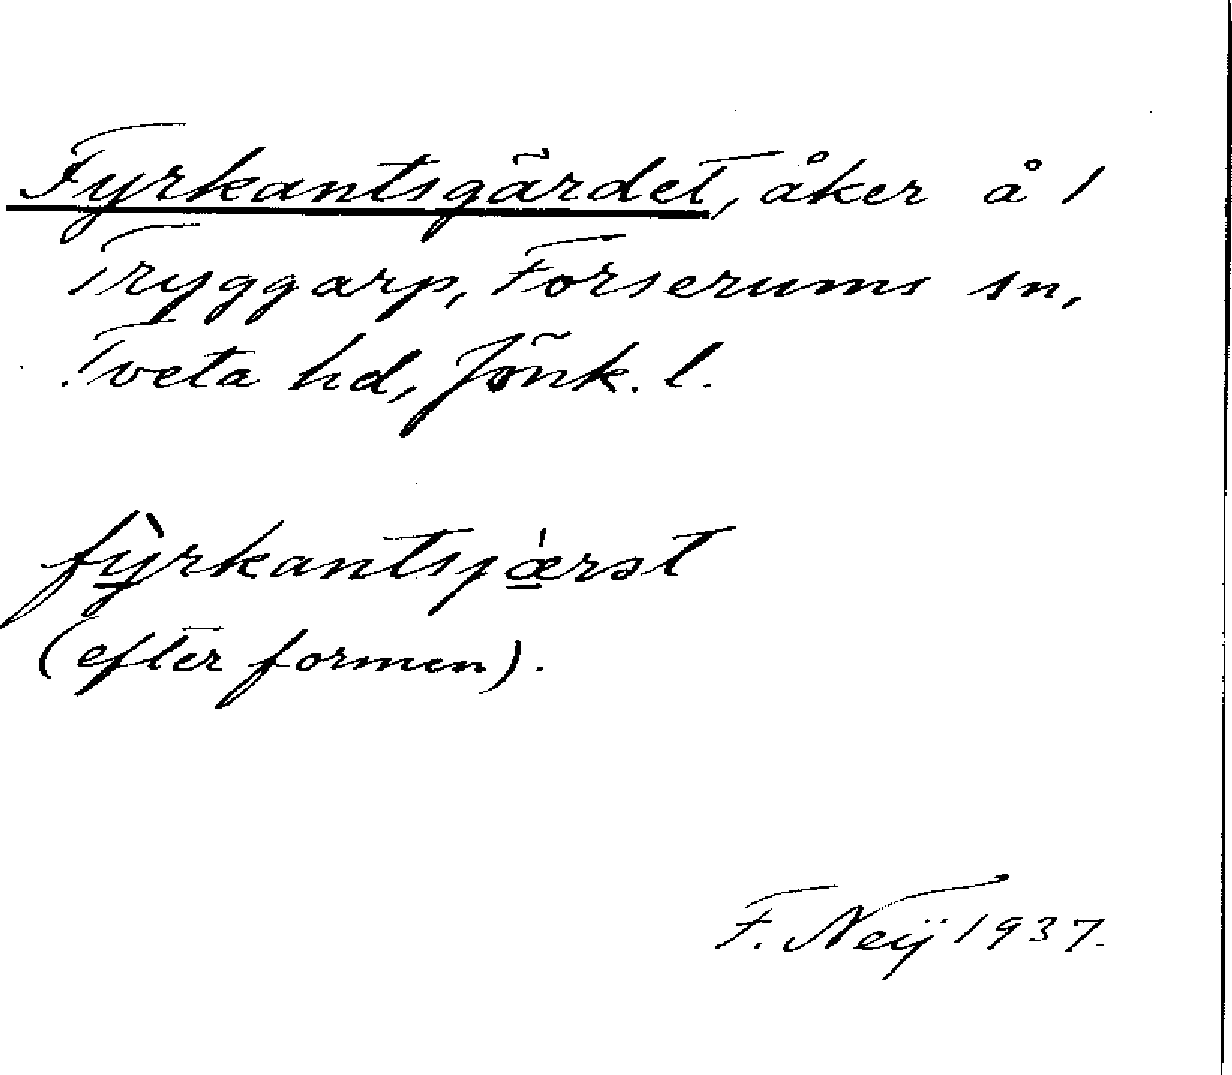 Fyrkantsgärdet, åker å 1
Tryggarp, Forserums sn,
Tveta hd, Jönk. l.
fỳ̠rkantsjǽ̠rət
(efter formen).
F. Neij 1937.